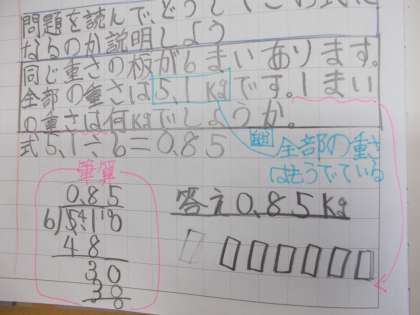 問題を読んで、どうしてこの式に
なるのか説明しよう
同じ重さの板が6まいあります。
全部の重さは5.1kgです。1まい
の重さは何kgでしょうか。
式5.1÷6=0.85
全部の重さ
はもうでている
筆算
0.85
6)5.10
48
30
30
0
答え0.85Kg